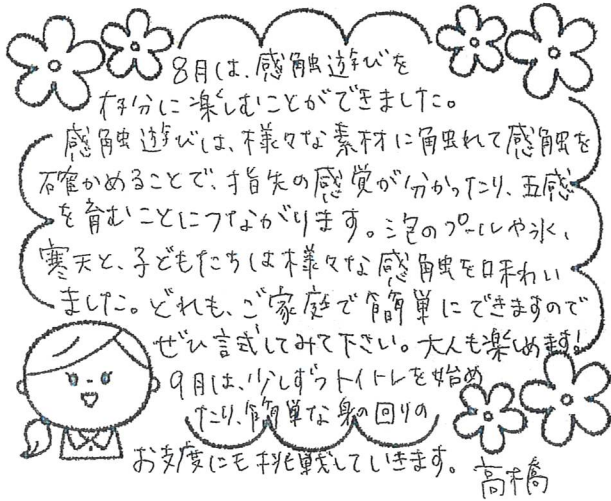 8月は、感触遊びを
存分に楽しむことができました。
感触遊びは、様々な素材に触れて感触を
確かめることで、指先の感覚が分かったり、五感
を育むことにつながります。泡のプールや氷、
寒天と、子どもたちは様々な感触を味わい
ました。どれも、ご家庭で簡単にできますので
ぜひ試してみて下さい。大人も楽しめます!
9月は、少しずつトイトレを始め
たり、簡単な身の回りの
お支度にも挑戦していきます。 高橋